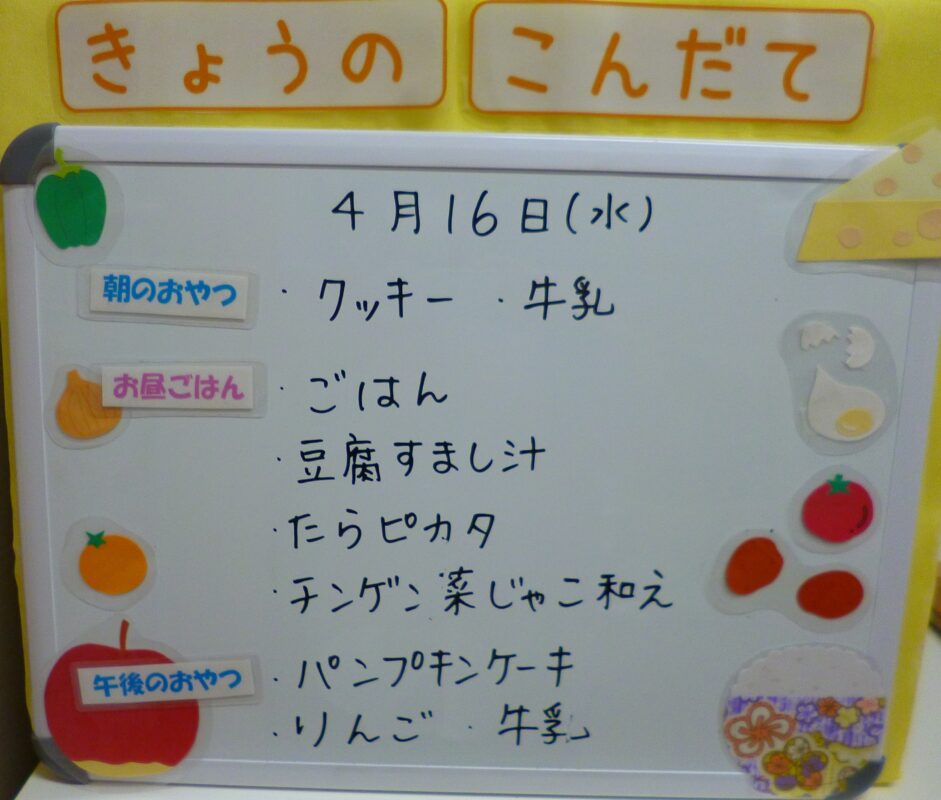 きょうの こんだて
4月16日(水)
朝のおやつ ・クッキー ・牛乳
お昼ごはん ・ごはん
・豆腐すまし汁
・たらピカタ
・チンゲン菜じゃこ和え
午後のおやつ ・パンプキンケーキ
・りんご ・牛乳